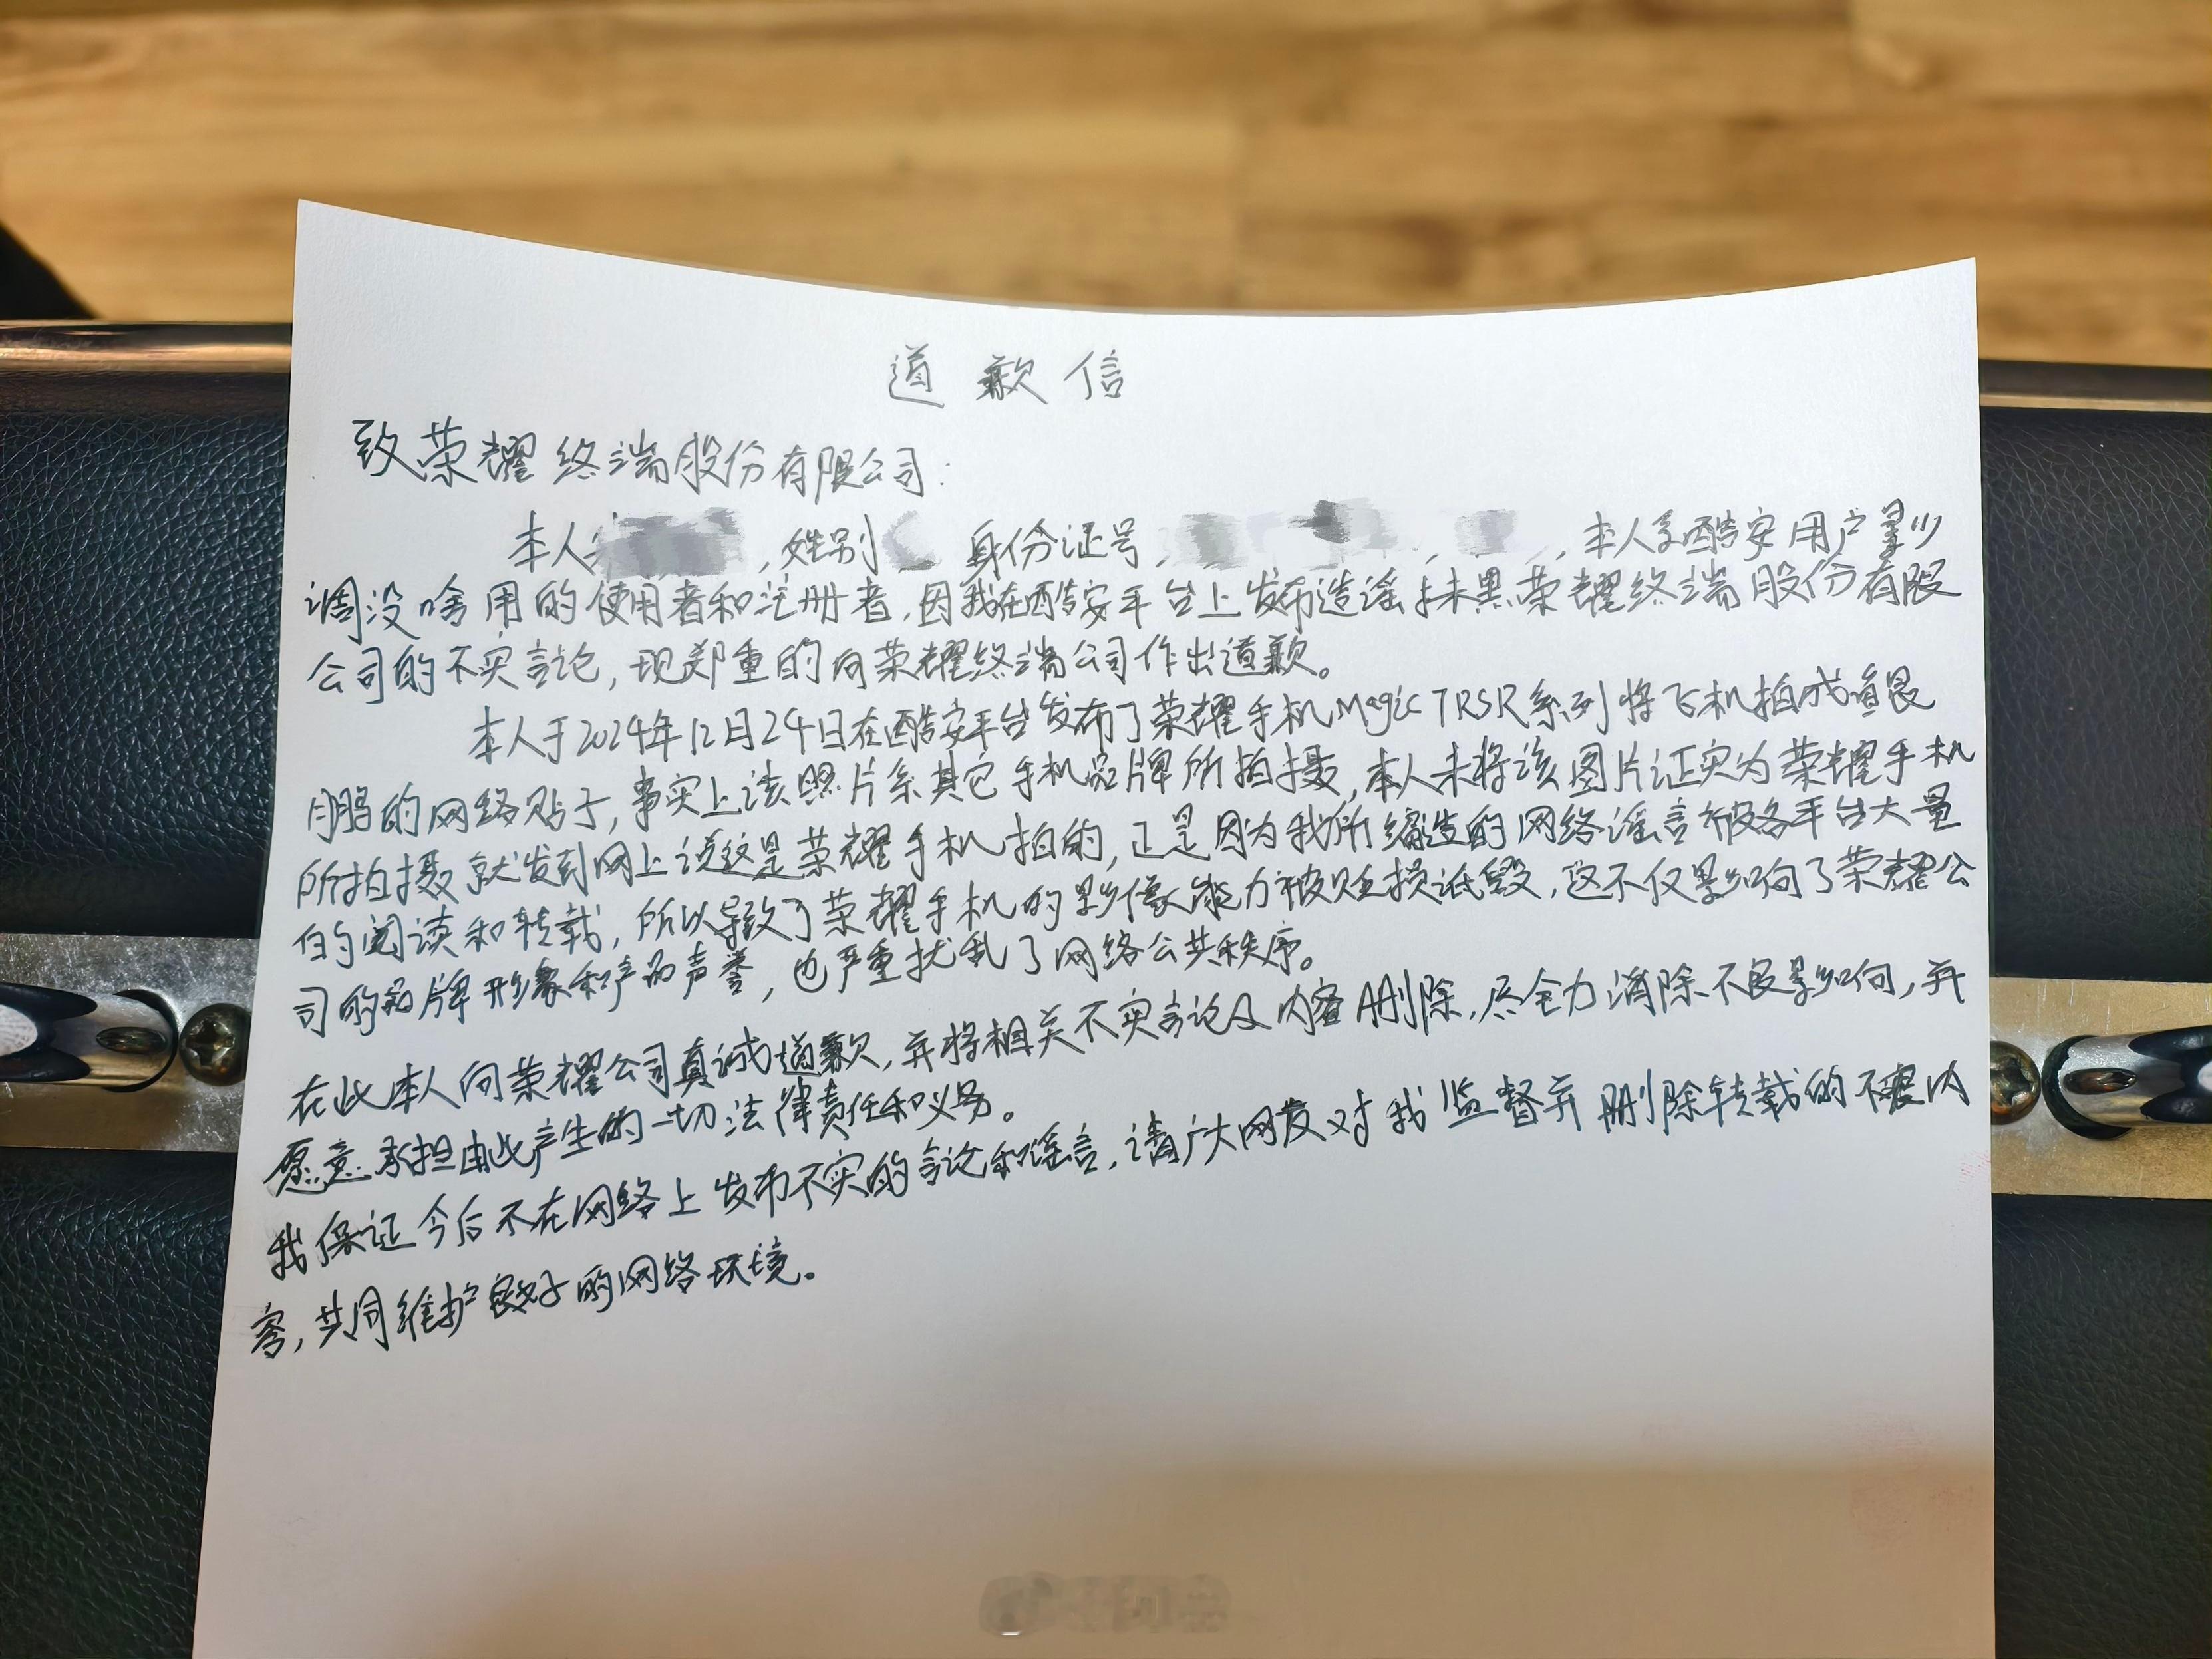 道歉信
致荣耀终端股份有限公司:
本人,姓别 身份证号, , ,本人系酷安用户景川
调没啥用的使用者和注册者,因我在酷安平台上发布造谣抹黑荣耀终端股份有限
公司的不实言论,现郑重的向荣耀终端公司作出道歉。
本人于2024年12月24日在酷安平台发布了荣耀手机Magic7RSR系列将飞机拍成
鹏的网络贴子,事实上该照片系其它手机品牌所拍摄,本人未将该图片证实为荣耀手机
所拍摄就发到网上说这是荣耀手机拍的,正是因为我所编造的网络谣言被各平台大量
的阅读和转载,所以导致了荣耀手机的影像能力被贬损诋毁,这不仅影响了荣耀公
司的品牌形象和产品声誉,也严重扰乱了网络公共秩序。
在此本人向荣耀公司真诚道歉,并将相关不实言论及内容删除,尽全力消除不良影响,并
愿意承担由此产生的一切法律责任和义务。
我保证今后不在网络上发布不实的言论和谣言,请广大网友对我监督并删除转载的不实内
容,共同维护良好的网络环境。